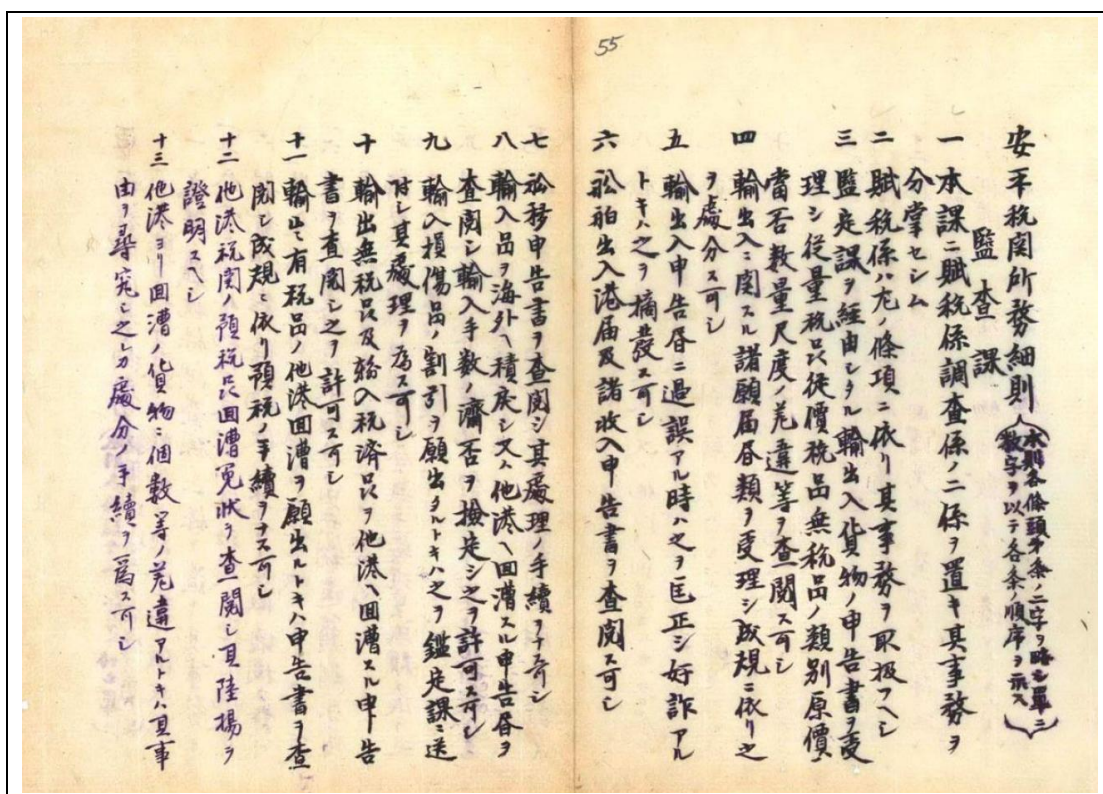 55
安平税関所務細則
(本則各條頭第条ノ二字ヲ略シ單ニ
数字ヲ以テ各条ノ順序ヲ示ス)
監査課
一 本課ニ賦税係調査係ノ二係ヲ置キ其事務ヲ
分掌セシム
二 賦税係ハ左ノ條項ニ依リ其事務ヲ取扱フヘシ
三 監定課ヲ経由シタル輸出入貨物ノ申告書ヲ受
理シ従量税品従價税品無税品ノ類別原價ノ
當否数量尺度ノ差違等ヲ査閲ス可シ
四 輸出入ニ関スル諸願届書類ヲ受理シ成規ニ依リ之
ヲ處分ス可シ
五 輸出入申告書ニ過誤アル時ハ之ヲ匡正シ奸詐アル
トキハ之ヲ摘發ス可シ
六 船舶出入港届及諸收入申告書ヲ査閲ス可シ
七 船移申告書ヲ査閲シ其處理ノ手續ヲナス可シ
八 輸入品ヲ海外ヘ積戻シ又ハ他港ヘ回漕スル申告書ヲ
査閲シ輸入手数ノ濟否ヲ撿定シ之ヲ許可ス可シ
九 輸入損傷品ノ割引ヲ願出タルトキハ之ヲ鑑定課ニ送
付シ其處理ヲ為ス可シ
十 輸出無税品及輸入税済品ヲ他港ヘ回漕スル申告
書ヲ査閲シ之ヲ許可ス可シ
十一 輸出有税品ノ他港回漕ヲ願出ルトキハ申告書ヲ査
閲シ成規ニ依リ預税ノ手續ヲナス可シ
十二 他港税関ノ預税品回漕免状ヲ査閲シ其陸揚ヲ
證明スヘシ
十三 他港ヨリ回漕ノ貨物ニ個数等ノ差違アルトキハ其事
由ヲ尋究シ之レカ處分ノ手續ヲ為ス可シ